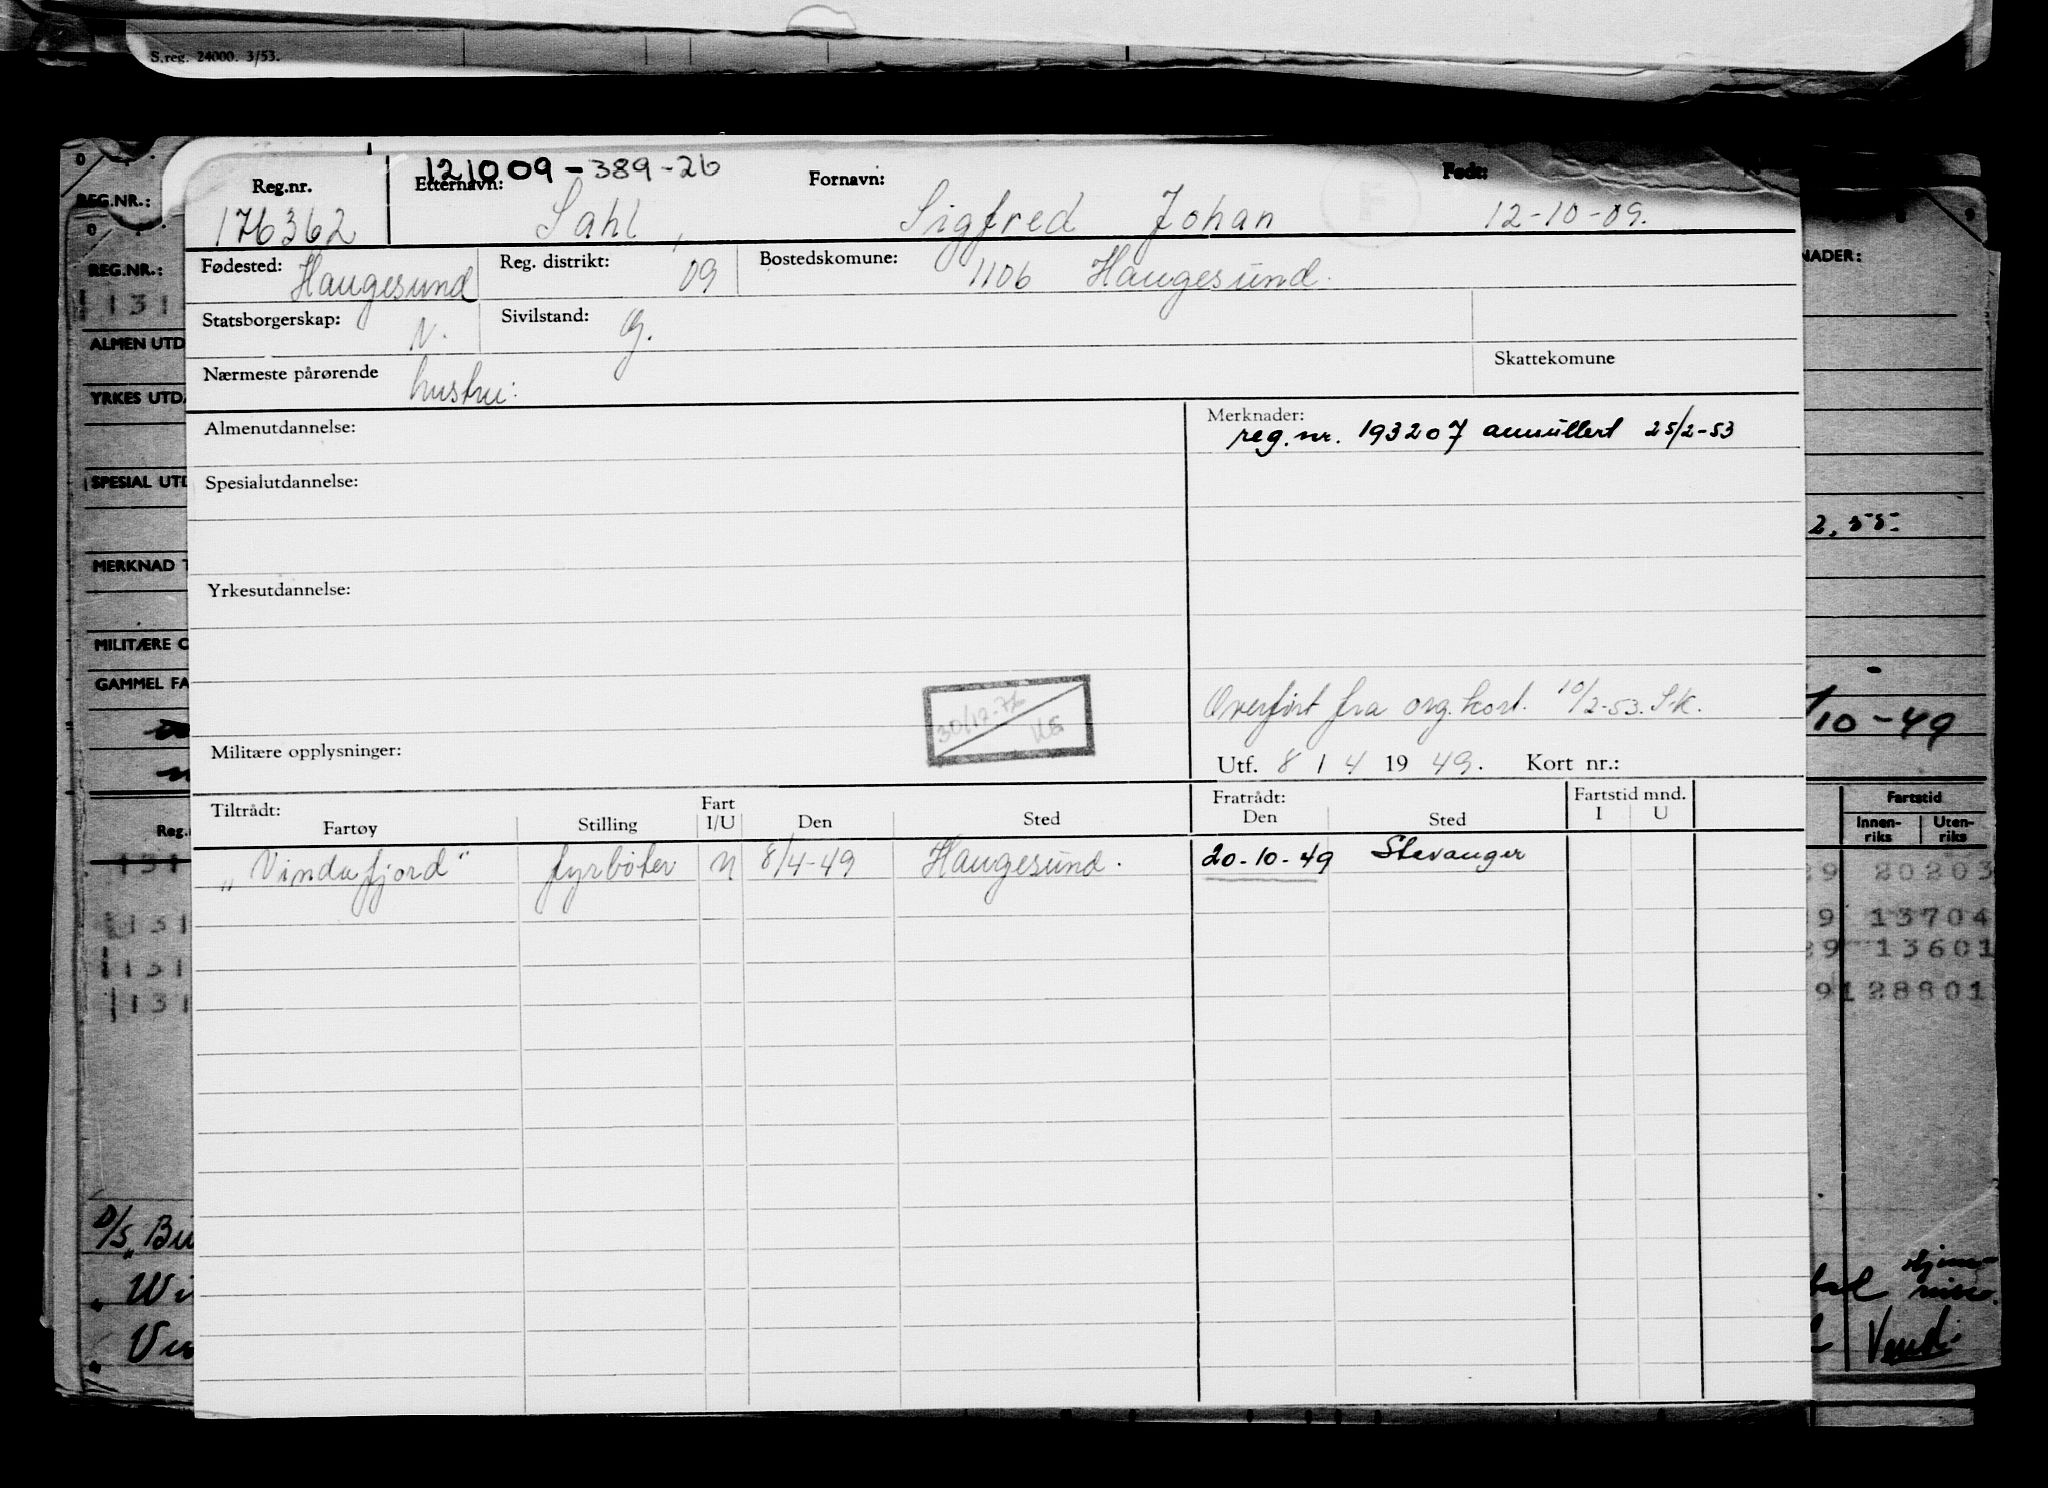 S.reg. 24000. 3/53.
121009-389-26
Reg.nr. Etternavn: Fornavn: Født:
176362 Sahl, Sigfred Johan 12-10-09.
Fødested: Haugesund Reg. distrikt: 09 Bostedskomune: 1106 Haugesund.
Statsborgerskap: N. Sivilstand: G.
Skattekomune
Nærmeste pårørende hustru:
Almenutdannelse:
Merknader:
reg. nr. 193207 annullert 25/2-53
Spesialutdannelse:
Yrkesutdannelse:
Overført fra org. kort. 10/2-53. S.K.
30/12-76
Militære opplysninger:
Utf. 8 / 4 19 49. Kort nr.:
Tiltrådt: Fratrådt: Fartstid mnd.
Fartøy Stilling Fart I/U Den Sted Den Sted I U
"Vindafjord" fyrbøter U 8/4-49 Haugesund. 20-10-49 Stavanger
REG.NR.:
REG.NR.:
131
ALMEN UTD
YRKES UTD
SPESIAL UTD
MERKNAD T
MILITÆRE O
GAMMEL FA
Reg.
131
131
131
131
D/S "Bu
" Wi
" Ve
NADER:
2,55-
/10-49
Fartstid
Innen-riks Uten-riks
29 20203
9 13704
29 13601
9128801